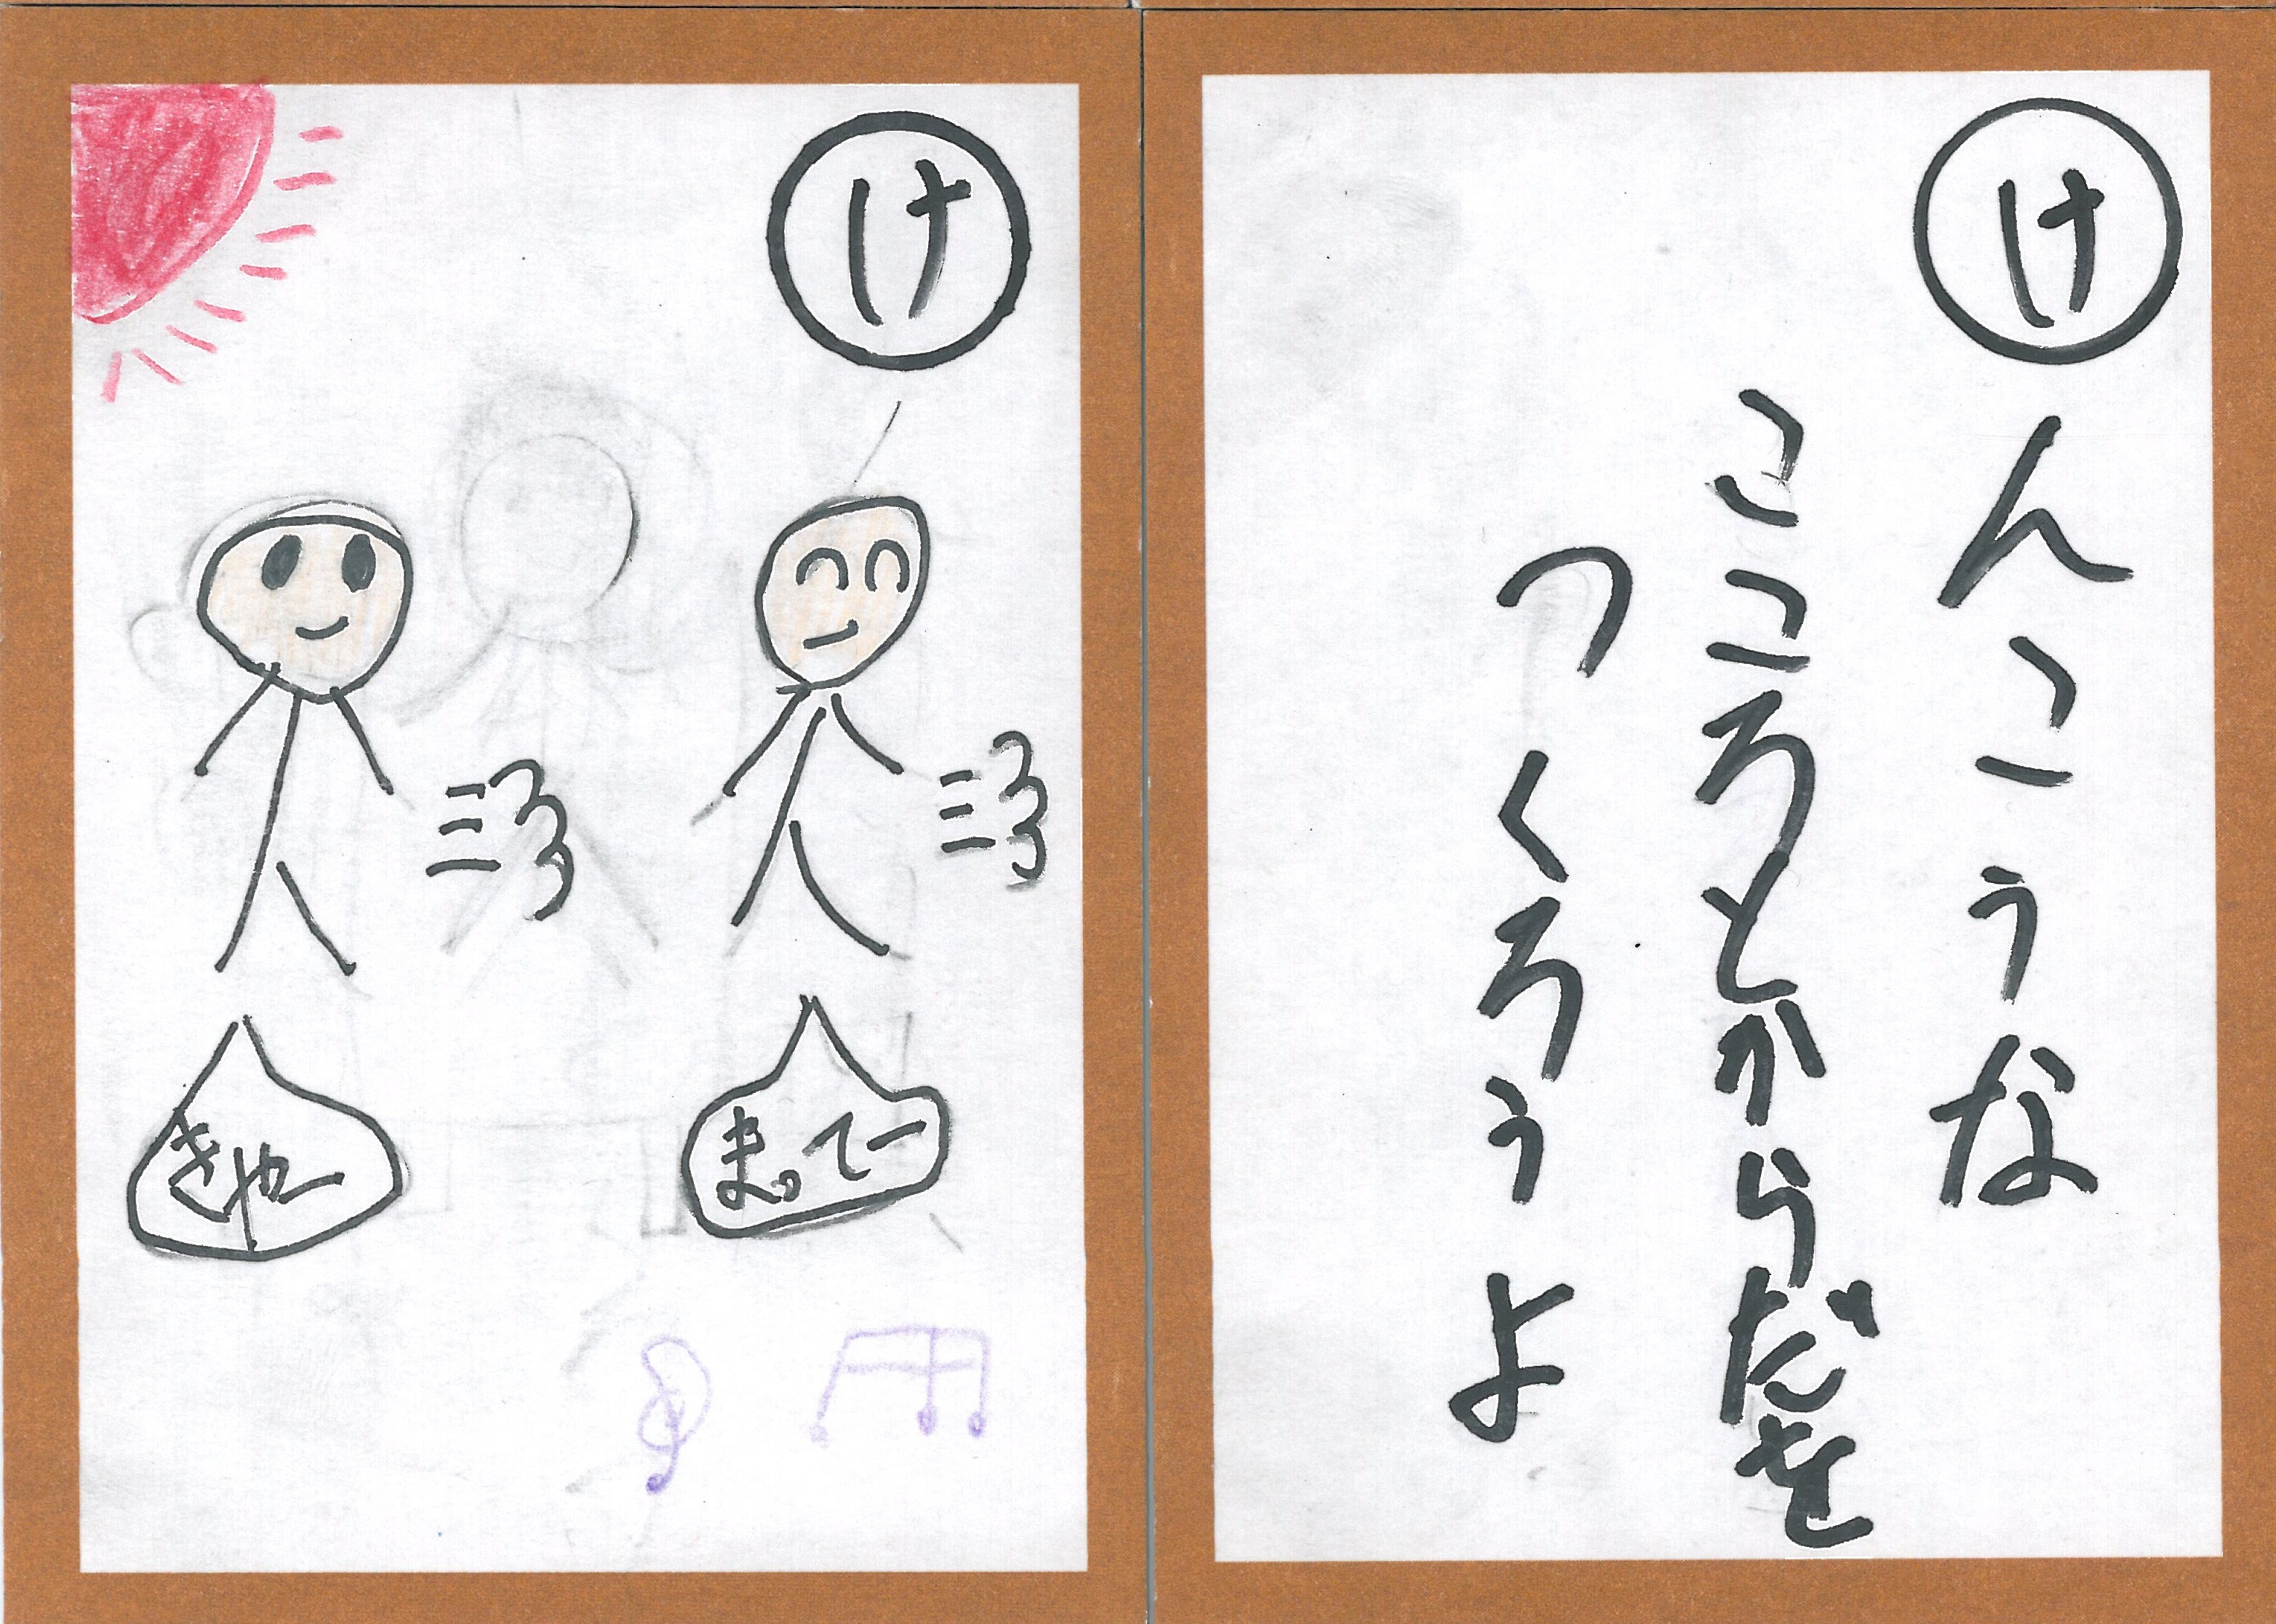 け
きゃー
まってー
け
んこうな
こころとからだを
つくろうよ